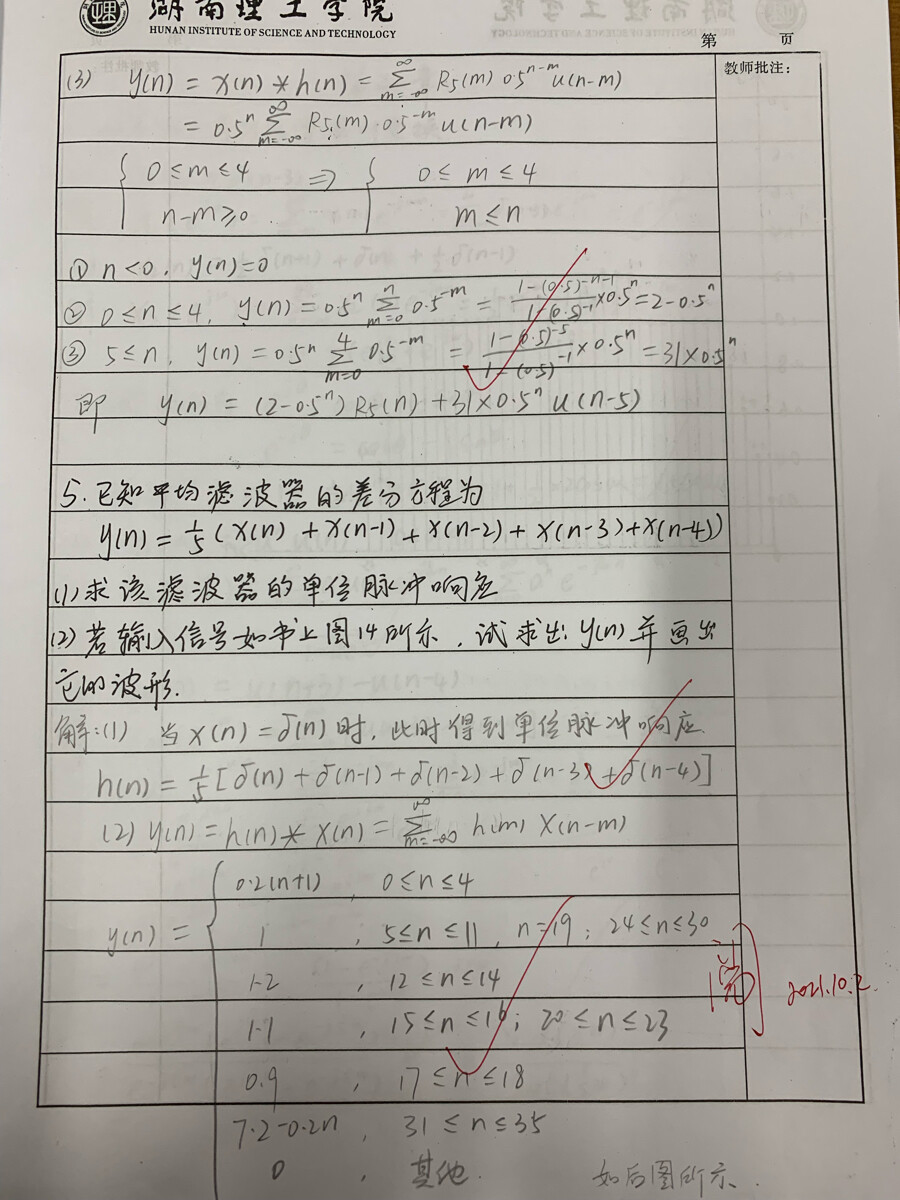 湖南理工学院
HUNAN INSTITUTE OF SCIENCE AND TECHNOLOGY
第 页
教师批注：
(3) y(n) = x(n) * h(n) = ∑_{m=-∞}^{∞} R₅(m) 0.5^{n-m} u(n-m)
= 0.5^n ∑_{m=-∞}^{∞} R₅(m)·0.5^{-m} u(n-m)
{ 0≤m≤4 ⇒ { 0≤m≤4
n-m≥0 m≤n
① n<0, y(n)=0
② 0≤n≤4, y(n)=0.5^n ∑_{m=0}^{n} 0.5^{-m} = (1-(0.5)^{-n-1})/(1-(0.5)^{-1}) ×0.5^n = 2-0.5^n
③ 5≤n, y(n)=0.5^n ∑_{m=0}^{4} 0.5^{-m} = (1-(0.5)^{-5})/(1-(0.5)^{-1}) × 0.5^n = 31×0.5^n
即 y(n) = (2-0.5^n) R₅(n) + 31×0.5^n u(n-5)
5.已知平均滤波器的差分方程为
y(n) = 1/5 (x(n) + x(n-1) + x(n-2) + x(n-3) + x(n-4))
(1)求该滤波器的单位脉冲响应
(2)若输入信号如书上图14所示，试求出y(n)并画出
它的波形.
解:(1) 当x(n)=δ(n)时,此时得到单位脉冲响应.
h(n) = 1/5 [δ(n) + δ(n-1) + δ(n-2) + δ(n-3) + δ(n-4)]
(2) y(n) = h(n) * x(n) = ∑_{m=-∞}^{∞} h(m) x(n-m)
0.2(n+1), 0≤n≤4
y(n) = { 1, 5≤n≤11, n=19; 24≤n≤30
1.2, 12≤n≤14
1.1, 15≤n≤16; 20≤n≤23
0.9, 17≤n≤18
7.2-0.2n, 31≤n≤35
0, 其他. 如后图所示.
2021.10.2.